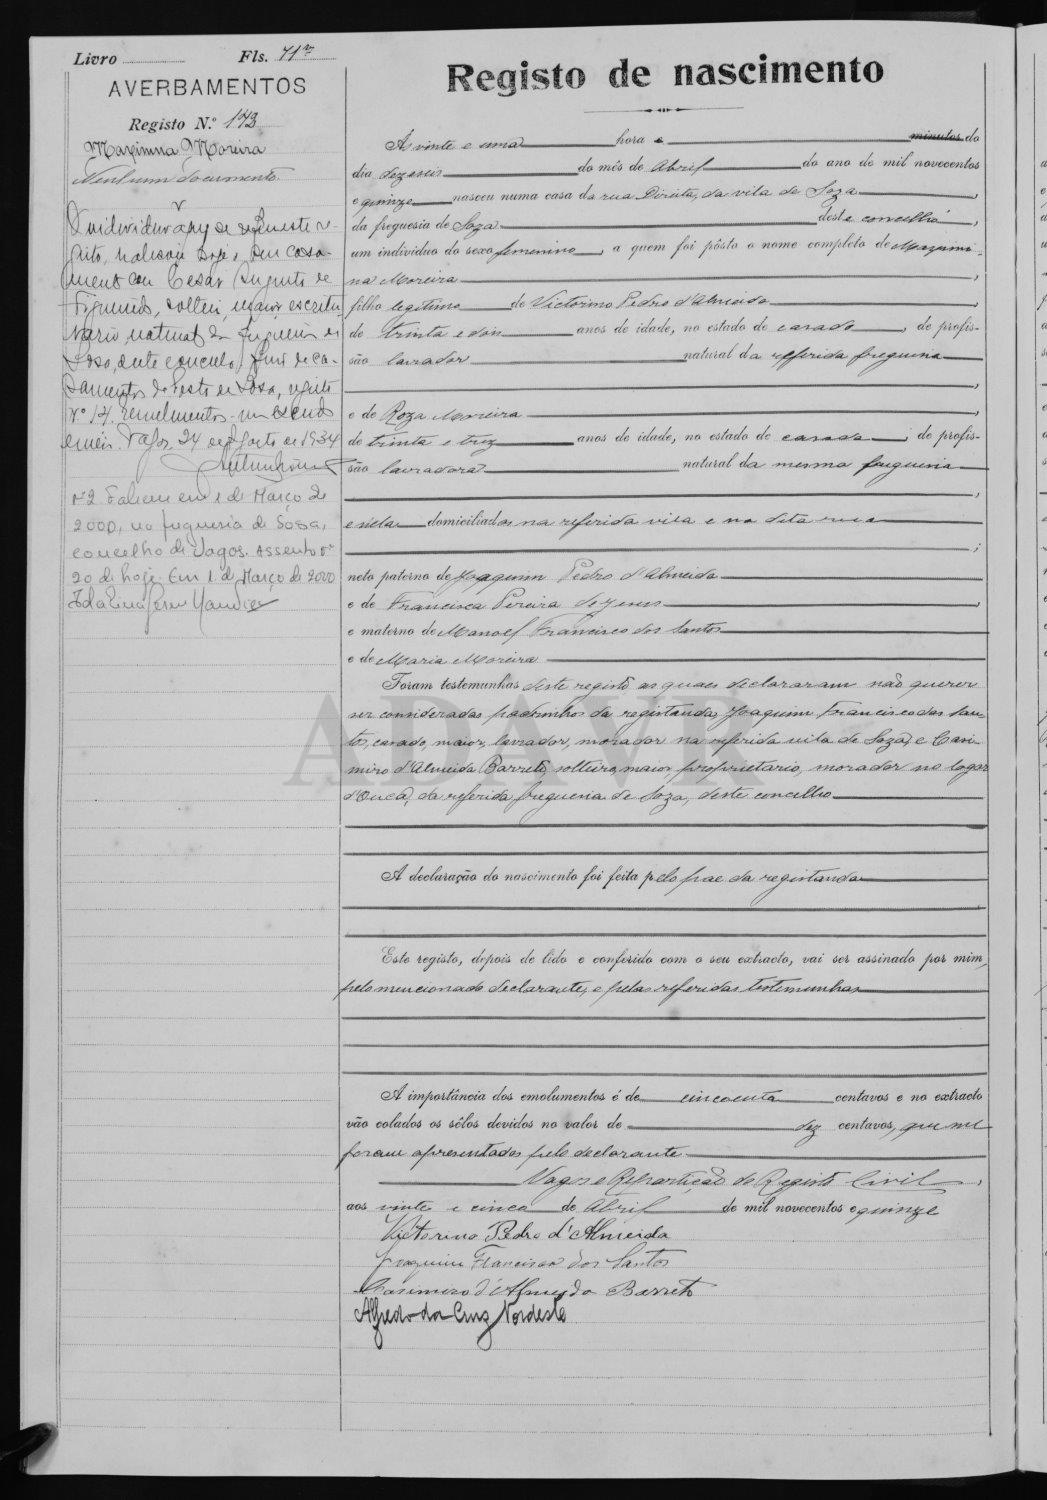 Livro Fls. 71v
AVERBAMENTOS
Registo N.º 173
Maximina Moreira
Nenhum documento.
O individuo a que se refere este re-
gisto, realisou hoje o seu casa-
mento com Cesar Augusto de
Figueiredo, solteiro, maior, escritu-
rario, natural da freguesia de
Sosa, deste concelho,
samentos do Posto de Sosa, registo
N.º 14. Emolumentos um escudo
Vagos, 24 de Agosto de 1934
Nº 2 Faleceu em 1 de Março de
2000, na freguesia de Sosa,
concelho de Vagos. Assento nº
20 de hoje. Em 1 de Março de 2000
Registo de nascimento
Ás vinte e uma hora e minutos do
dia dezaseis do mês de Abril do ano de mil novecentos
e quinze nasceu numa casa da rua Direita, da vila de Soza,
da freguesia de Soza deste concelho,
um individuo do sexo femenino, a quem foi pôsto o nome completo de Maximi-
na Moreira,
filho legitimo de Victorino Pedro d'Almeida,
de trinta e dois anos de idade, no estado de casado, de profis-
são lavrador natural da referida freguesia
,
e de Roza Moreira,
de trinta e trez anos de idade, no estado de casada, de profis-
são lavradora natural da mesma freguesia
,
domiciliados na referida vila e na dita rua
;
neto paterno de Joaquim Pedro d'Almeida
e de Francisca Pereira de Jesus,
e materno de Manoel Francisco dos Santos
e de Maria Moreira
Foram testemunhas deste registo as quaes declararam não querer
ser consideradas padrinhos da registanda, Joaquim Francisco dos San-
tos, casado, maior, lavrador, morador na referida vila de Soza, e Casi-
miro d'Almeida Barreto, solteiro, maior, proprietario, morador no logar
d'Ouca, da referida freguesia de Soza, deste concelho
A declaração do nascimento foi feita pelo pae da registanda
Este registo, depois de lido e conferido com o seu extracto, vai ser assinado por mim,
pelo mencionado declarante, e pelas referidas testemunhas
A importância dos emolumentos é de cincoenta centavos e no extracto
vão colados os sêlos devidos no valor de dez centavos, que me
foram apresentados pelo declarante
Vagos e Repartição do Registo Civil,
aos vinte e cinco de Abril de mil novecentos e quinze
Victorino Pedro d'Almeida
Joaquim Francisco dos Santos
Casimiro d'Almeida Barreto
Alfredo da Cruz Nordeste
ADAVR